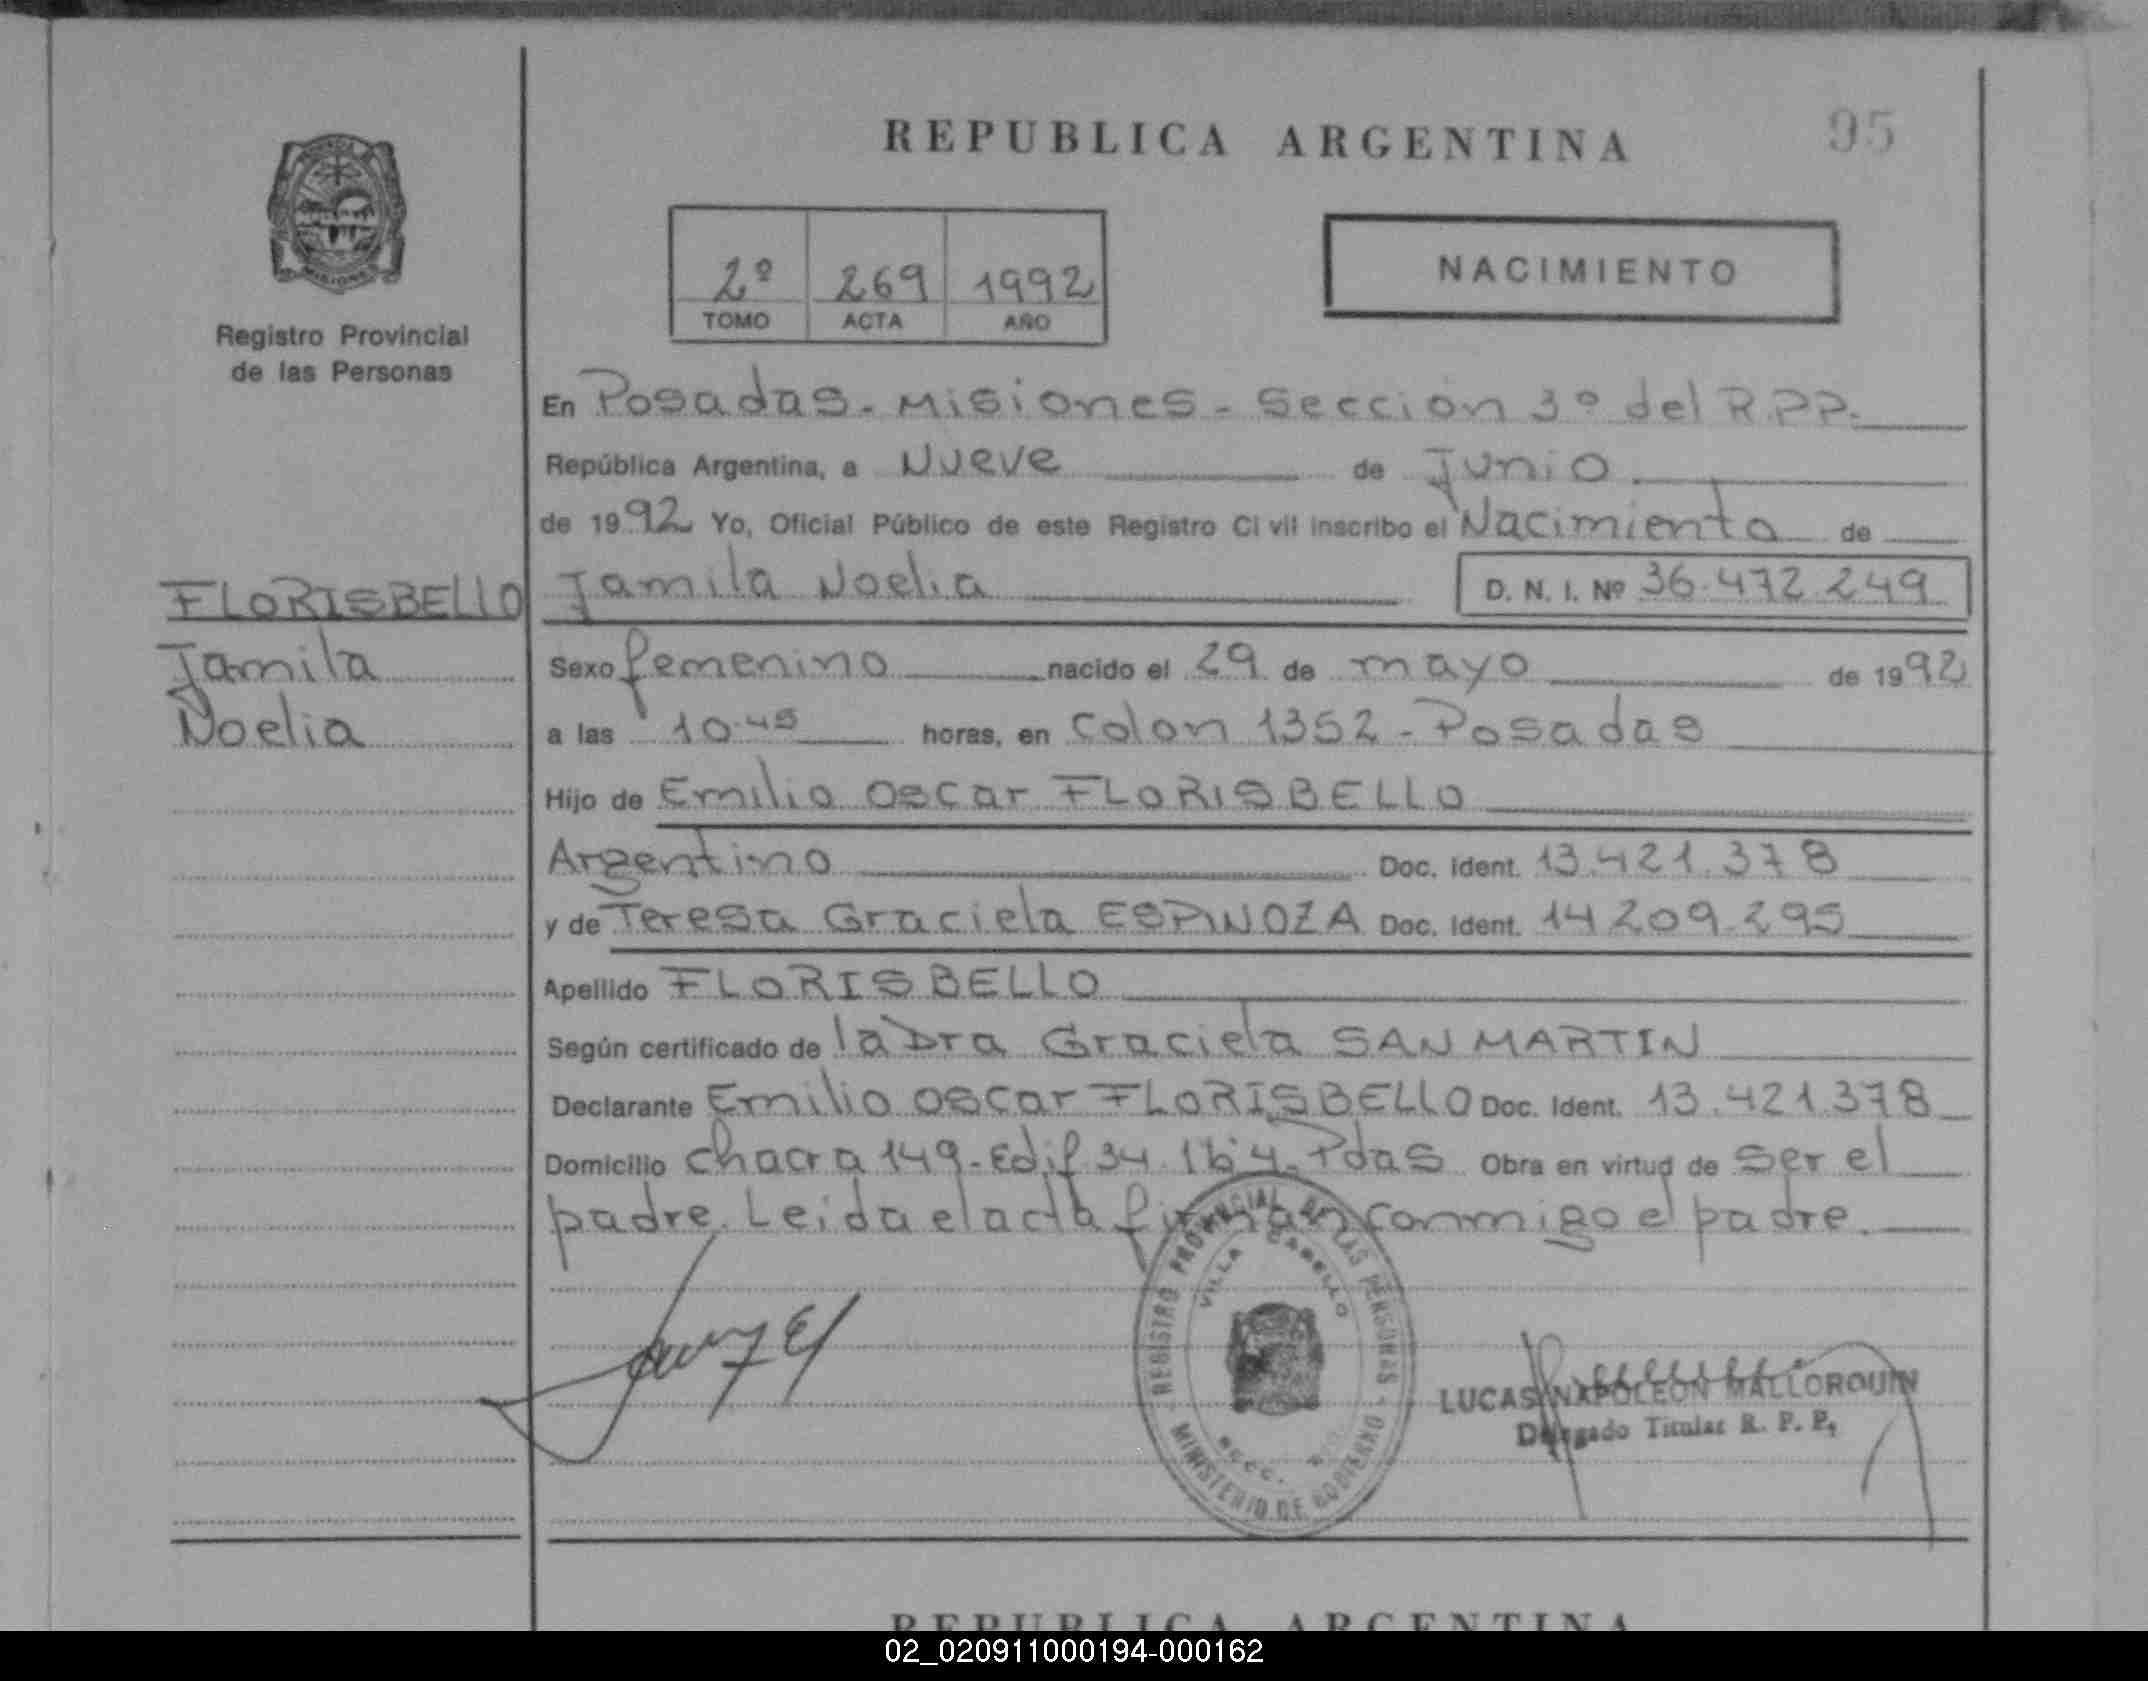 REPUBLICA ARGENTINA
95
MISIONES
Registro Provincial
de las Personas
2º 269 1992
TOMO ACTA AÑO
NACIMIENTO
En Posadas - Misiones - Sección 3º del R.P.P.
República Argentina, a Nueve de Junio
de 1992 Yo, Oficial Público de este Registro Civil inscribo el Nacimiento de
FLORISBELLO
Jamila
Noelia
Jamila Noelia D. N. I. Nº 36.472.249
Sexo femenino nacido el 29 de mayo de 1992
a las 10.45 horas, en Colon 1352 - Posadas
Hijo de Emilio Oscar FLORISBELLO
Argentino Doc. Ident. 13.421.378
y de Teresa Graciela ESPINOZA Doc. Ident. 14209.295
Apellido FLORISBELLO
Según certificado de la Dra Graciela SAN MARTIN
Declarante Emilio Oscar FLORISBELLO Doc. Ident. 13.421.378
Domicilio chacra 149 - Edif 34 Pdas Obra en virtud de ser el
padre. Leida el acta firman conmigo el padre.
REGISTRO PROVINCIAL DE LAS PERSONAS
VILLA CABELLO
MINISTERIO DE GOBIERNO
LUCAS NAPOLEON MALLORQUIN
Delegado Titular R. P. P.
REPUBLICA ARGENTINA
02_020911000194-000162